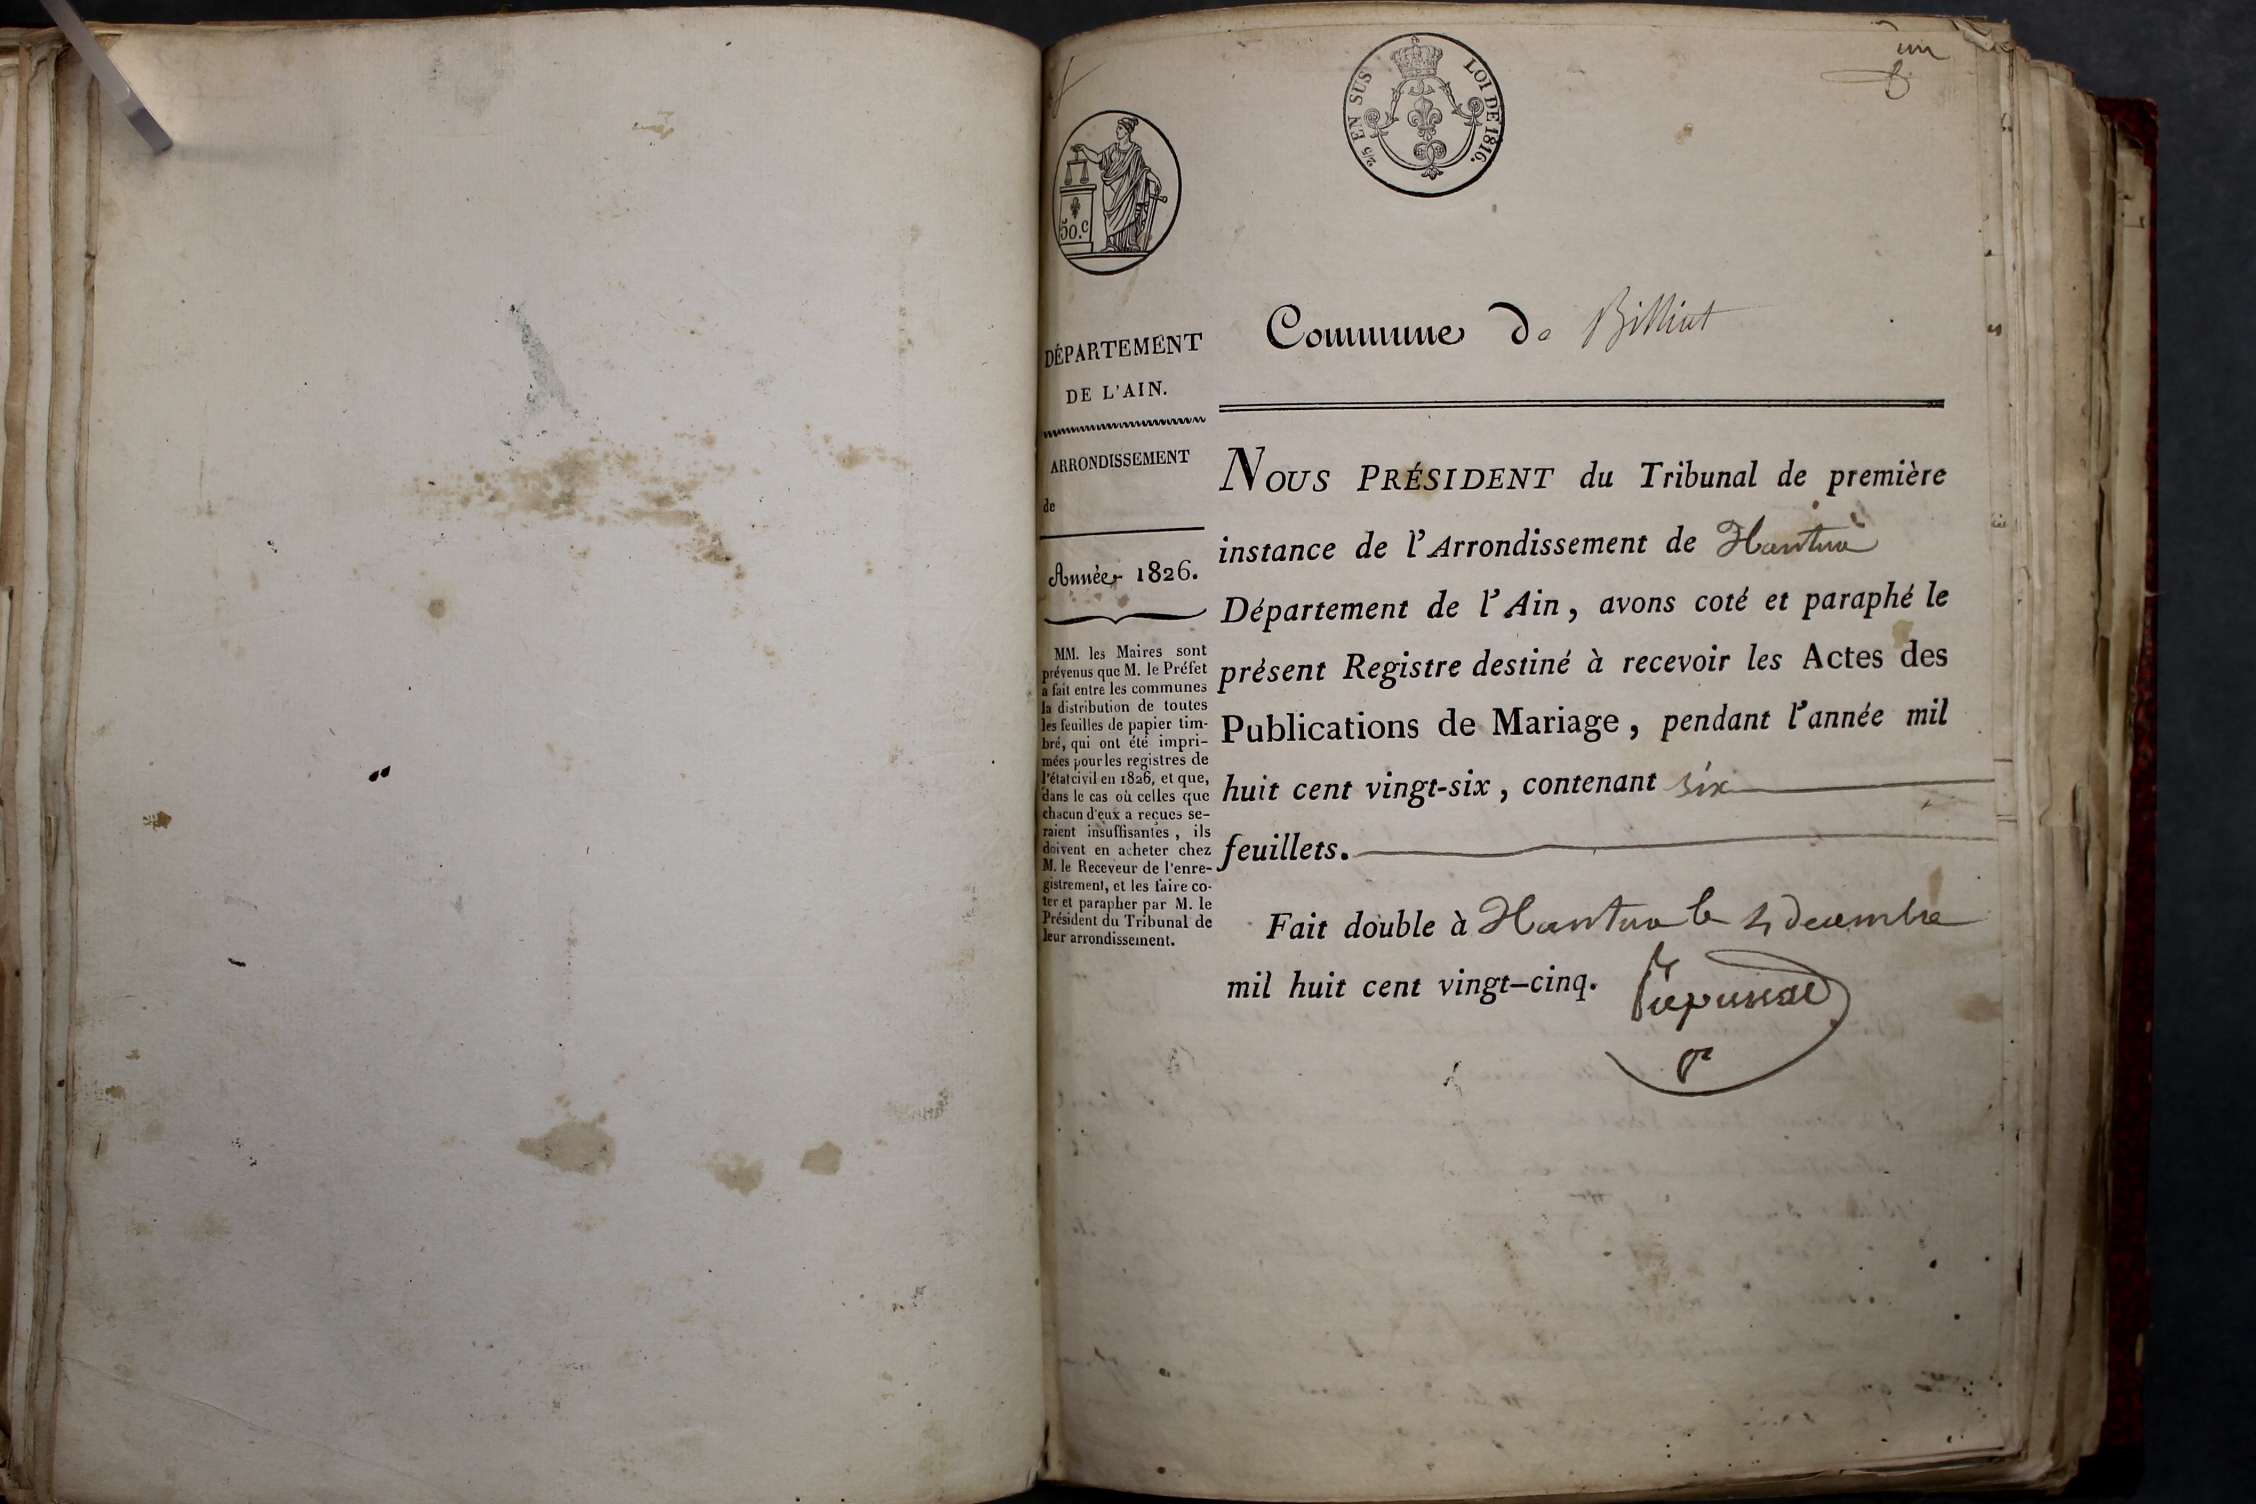 un
2/5 EN SUS LOI DE 1816.
50.c
DÉPARTEMENT
DE L'AIN.
ARRONDISSEMENT
de
Année 1826.
MM. les Maires sont
prévenus que M. le Préfet
a fait entre les communes
la distribution de toutes
les feuilles de papier tim-
bré, qui ont été impri-
mées pour les registres de
l'état civil en 1826, et que,
dans le cas où celles que
chacun d'eux a reçues se-
raient insuffisantes, ils
doivent en acheter chez
M. le Receveur de l'enre-
gistrement, et les faire co-
ter et parapher par M. le
Président du Tribunal de
leur arrondissement.
Commune de Billiat
NOUS PRÉSIDENT du Tribunal de première
instance de l'Arrondissement de Nantua
Département de l'Ain, avons coté et paraphé le
présent Registre destiné à recevoir les Actes des
Publications de Mariage, pendant l'année mil
huit cent vingt-six, contenant six
feuillets.
Fait double à Nantua le 4 decembre
mil huit cent vingt-cinq.